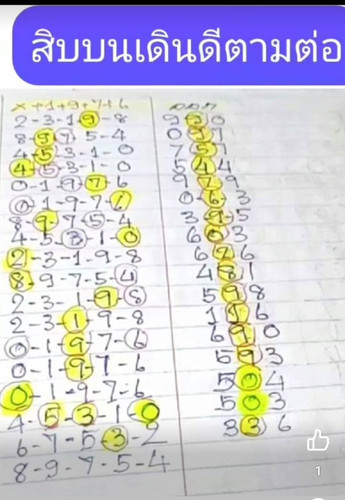 สิบบนเดินดีตามต่อ
x+1+9+7+6
2-3-1-9-8 930
8-9-7-5-4 097
4-5-3-1-0 757
4-5-3-1-0 544
0-1-9-7-6 979
0-1-9-7-6 063
8-9-7-5-4 395
4-5-3-1-0 603
2-3-1-9-8 626
8-9-7-5-4 481
2-3-1-9-8 598
2-3-1-9-8 116
0-1-9-7-6 690
0-1-9-7-6 593
0-1-9-7-6 504
4-5-3-1-0 503
6-7-5-3-2 336
8-9-7-5-4
1